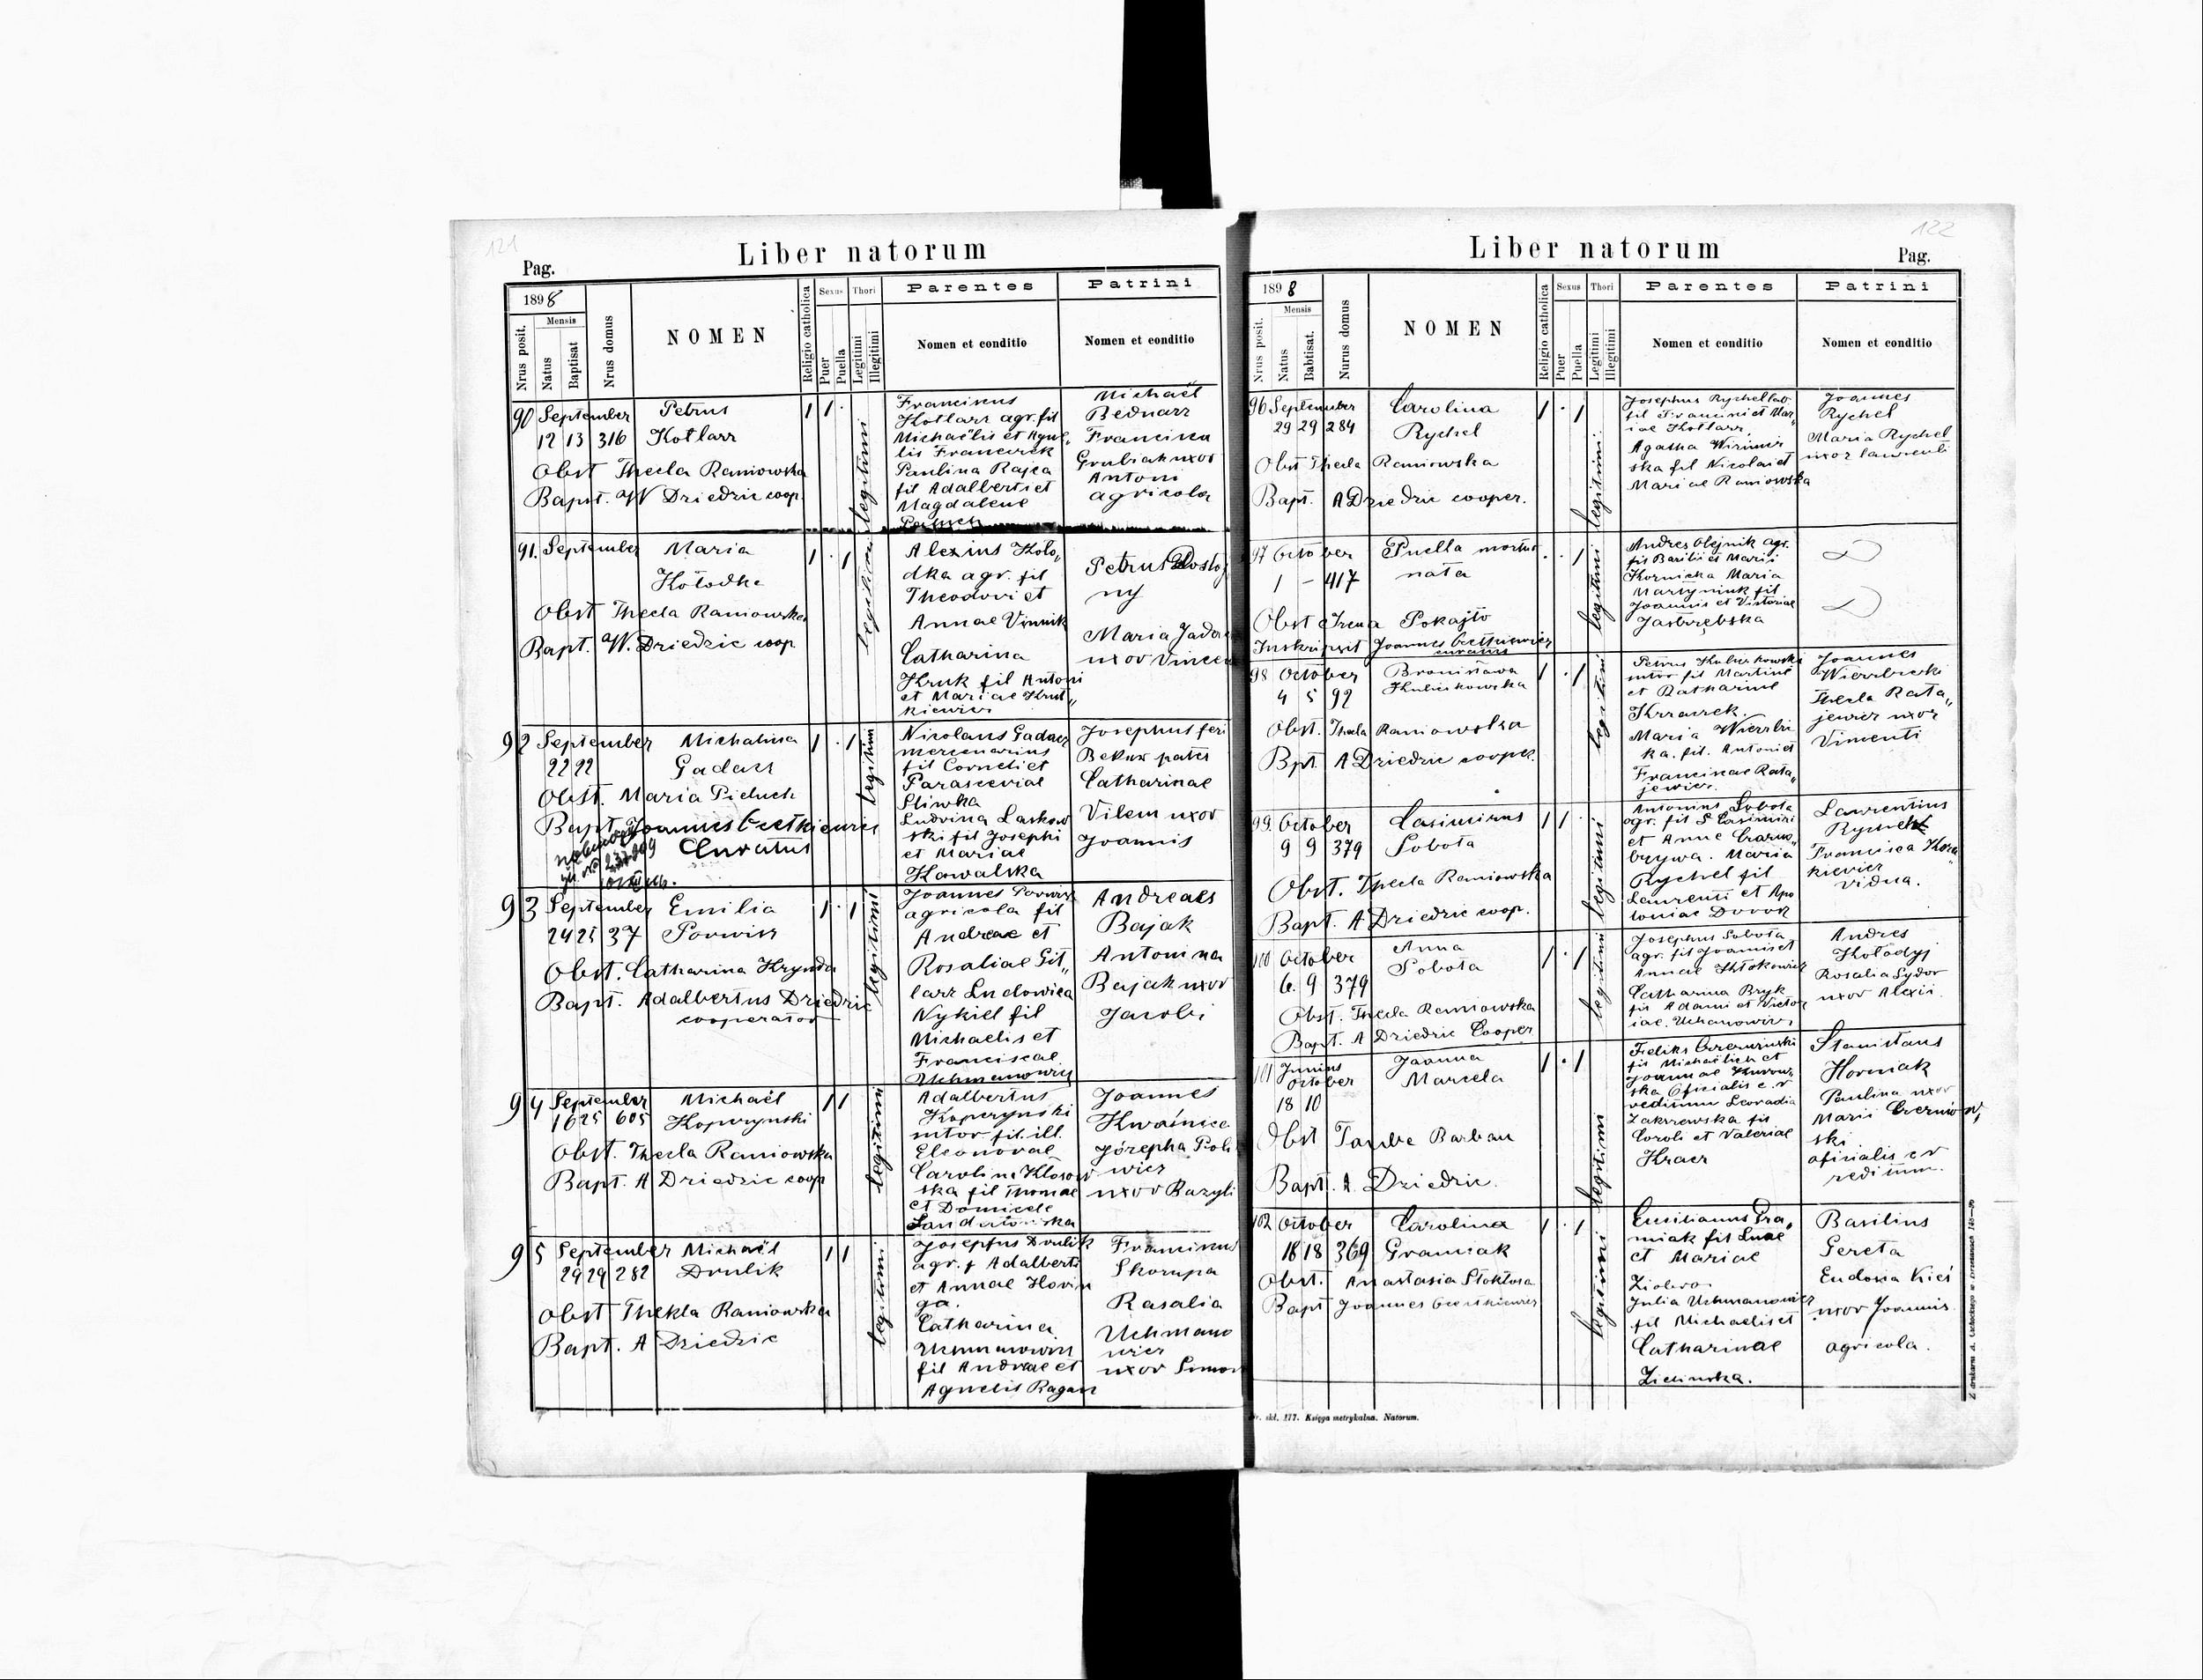 121
Liber natorum
Pag.
1898
Nrus posit.
Mensis
Natus
Baptisat
Nrus domus
NOMEN
Religio catholica
Sexus
Puer
Puella
Thori
Legitimi
Illegitimi
Parentes
Nomen et conditio
Patrini
Nomen et conditio
90 September
12 13 316
Petrus
Kotlarz
1 1 .
legitimi
Obst Thecla Raniowska
Bapt. W Driedzic coop
Franciscus
Kotlarz agr. fil
Michaëlis et Agne„
lis Francirek
Paulina Rajca
fil Adalberti et
Magdalene
Michaël
Bednarz
Francisca
Grubiak uxor
Antoni
agricola
91. September
Maria
Kołodka
1 . 1
legitimi
Obst Thecla Raniowska
Bapt. W. Driedzic coop
Alexius Koło„
dka agr. fil
Theodori et
Annae Vinnik
Catharina
Kruk fil Antoni
et Mariae Kruk„
kiewicz
Petrus Dostoj
ny
Maria
uxor Vincen
92 September
22 22
Michalina
Gadacz
1 . 1
legitimi
Obst. Maria Pieluch
Bapt. Joannes Cretkiewicz
Curatus
Nicolaus Gadacz
mercenarius
fil Corneli et
Parasceviae
Sliwka
Ludvina Laskow
ski fil Josephi
et Mariae
Kowalska
Josephus feri
Bekus pater
Catharinae
Vilem uxor
Joannis
93 September
24 25 37
Emilia
Porwisz
1 . 1
legitimi
Obst. Catharina Krynda
Bapt. Adalbertus Driedzic
cooperator
Joannes Porwisz
agricola fil
Andreae et
Rosaliae Git„
larz Ludowica
Nykiel fil
Michaelis et
Franciscae
Uchmanowicz
Andreas
Bajak
Antonina
Bajak uxor
Jacobi
94 September
16 25 605
Michaël
Koperzynski
1 1
legitimi
Obst. Thecla Raniowska
Bapt. A Driedzic coop
Adalbertus
Koperzynski
sutor fil. ill.
Eleonorae
Carolina Klosow
ska fil Thomae
et Domicele
Joannes
Kwaśnica
Józepha
wicz
uxor Bazyli
95 September
29 29 282
Michaël
Drulik
1 1
legitimi
Obst Thekla Raniowska
Bapt. A Dziedzic
Josephus Drulik
agr. f Adalberti
et Annae Horin
ga.
Catharina
Uchmanowicz
fil Andreae et
Agnelis Ragan
Franciscus
Skorupa
Rasalia
Uchmano
wicz
uxor Simon
122
Liber natorum
Pag.
1898
Nrus posit.
Mensis
Natus
Babtisat.
Nurus domus
NOMEN
Religio catholica
Sexus
Puer
Puella
Thori
Legitimi
Illegitimi
Parentes
Nomen et conditio
Patrini
Nomen et conditio
96 September
29 29 284
Carolina
Rychel
1 . 1
legitimi.
Obst Thecla Raniowska
Bapt. A Driedzic cooper.
Josephus Rychel
fil Francisci et Mar„
iae Kotlarz
Agatha
ska fil Nicolai et
Mariae Raniowska
Joannes
Rychel
Maria Rychel
uxor Laurenti
97 October
1 – 417
Puella mortus
nata
. . 1
legitimi
Obst Irena Pokajło
Inskripsit Joannes Cretkiewicz
curatus
Andres Olejnik agr.
fil Basilii et Marii
Kornicka Maria
Martyniuk fil
Joannis et Victoriae
Jastrzębska
98 October
4 5 92
Bronisława
Kulczkowska
1 . 1
legitimi
Obst. Thecla Raniowska
Bpt A Driedzic cooper.
Petrus Kulczkowski
sutor fil Martini
et Katharine
Krzaczek.
Maria Wierzbi
ka. fil. Antoni et
Franciscae Rata„
jewicz.
Joannes
Wierzbicki
Thecla Rata„
jewicz uxor
Vincenti
99. October
9 9 379
Casimirus
Sobota
1 1 .
legitimi
Obst. Thecla Raniowska
Bapt. A Driedzic coop.
Antonius Sobota
agr. fil S Casimiri
et Anne Czarno„
brywa. Maria
Rychel fil
Laurenti et Apo
loniae Doroz
Laurentius
Rychel
Francisca
kiewicz
vidua.
100 October
6. 9 379
Anna
Sobota
1 . 1
legitimi
Obst. Thecla Raniowska
Bapt. A Driedzic Cooper
Josephus Sobota
agr. fil Joannis et
Annae Kłokowicz
Catharina Bryk
fil Adami et Victor
iae. Uchanowicz
Andres
Kołodyj
Rosalia Sydor
uxor Alexii.
101 Junius
October
18 10
Joanna
Marcela
1 . 1
legitimi
Obst Taube Barban
Bapt. A Dziedzic.
Feliks
fil Michaëlis et
Joannae
ska Oficialis c. r
redimu Leocadia
Zakrzewska fil
Caroli et Valeriae
Kracz
Stanislaus
Horniak
Paulina uxor
Marii
ski
oficialis c r
redimu.
102 October
18 18 369
Carolina
Graniak
1 . 1
legitimi
Obst. Anastasia Stoktosa
Bapt Joannes Cretkiewicz
Emilianus Gra„
niak fil Lucae
et Mariae
Julia Uchmanowicz
fil Michaelis et
Catharinae
Zielinska.
Basilius
Gereta
Eudoxia Kieś
uxor Joannis
agricola.
Nr. skł. 177. Księga metrykalna. Natorum.